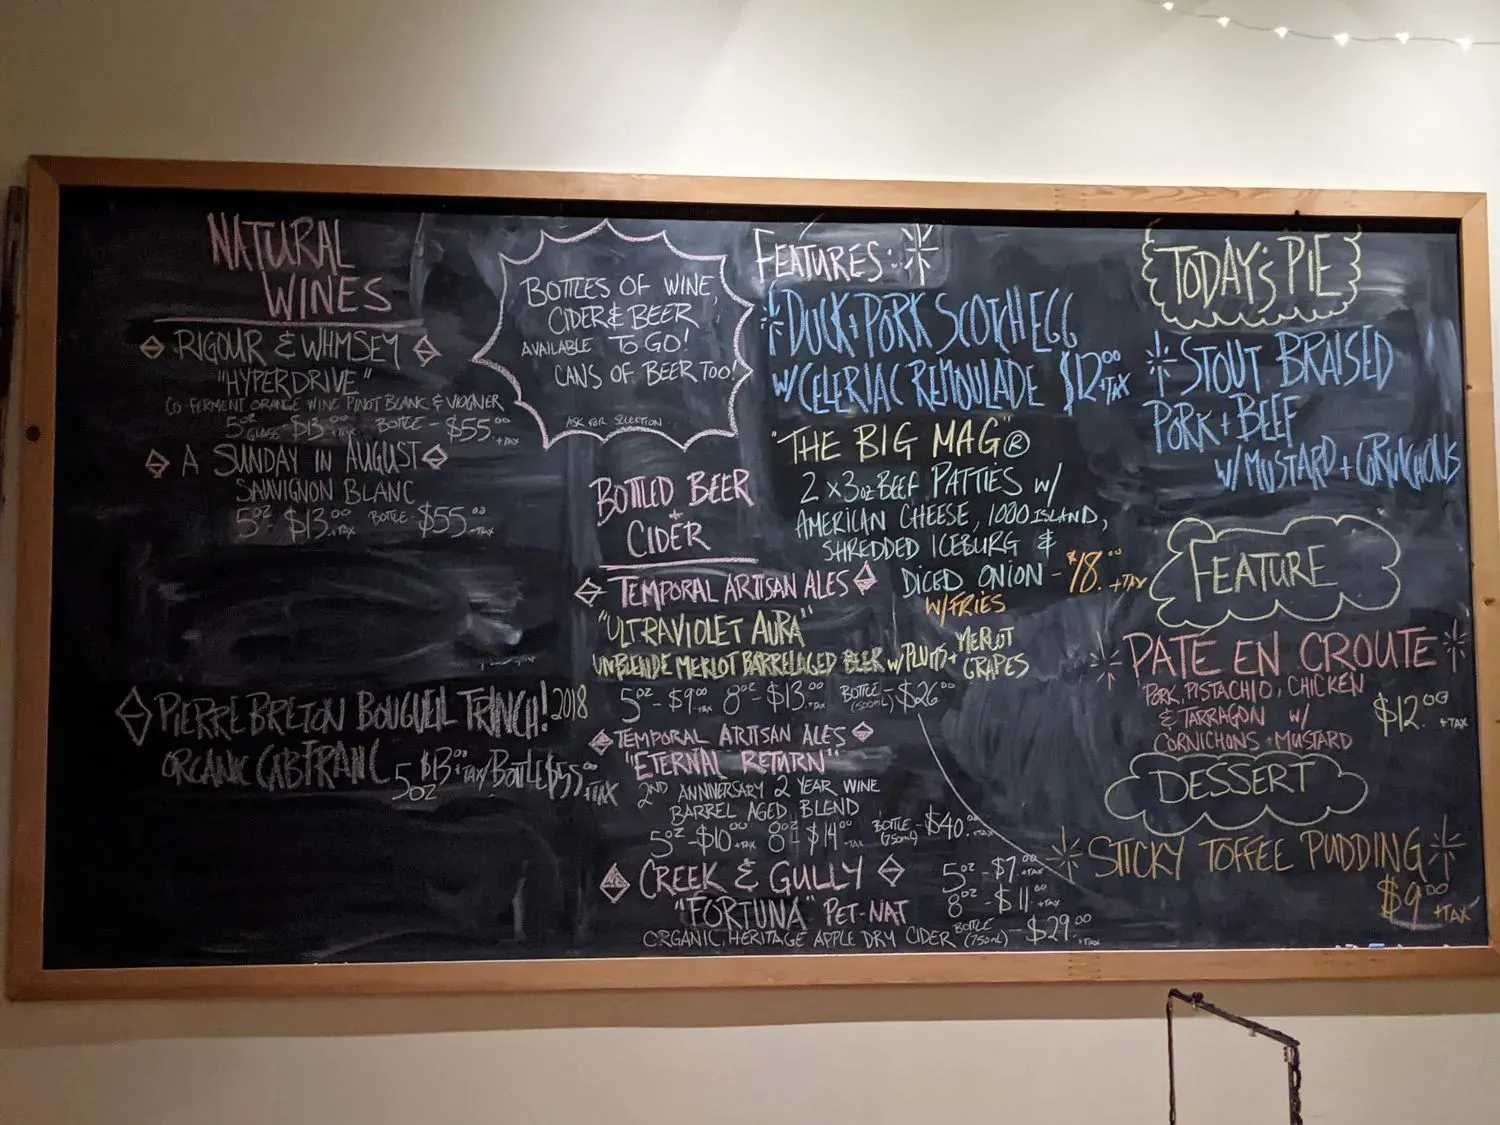 NATURAL
WINES
RIGOUR & WHMSEY
"HYPERDRIVE"
CO-FERMENT ORANGE WINE PINOT BLANC & VIOGNER
5oz GLASS - $13.00 +TAX BOTTLE - $55.00 +TAX
A SUNDAY IN AUGUST
SAUVIGNON BLANC
5oz - $13.00 +TAX BOTTLE - $55.00 +TAX
PIERRE BRETON BOUGUEIL TRINCH! 2018
ORGANIC CAB FRANC 5oz $13.00 +TAX/BOTTLE $55.00 +TAX
BOTTLES OF WINE,
CIDER & BEER
AVAILABLE TO GO!
CANS OF BEER TOO!
ASK FOR SELECTION
BOTTLED BEER
+
CIDER
TEMPORAL ARTISAN ALES
"ULTRAVIOLET AURA"
UNBLENDE MERLOT BARREL AGED BEER w/ PLUMS + MERLOT
GRAPES
5oz - $9.00 +TAX 8oz - $13.00 +TAX BOTTLE (500mL) - $26.00 +TAX
TEMPORAL ARTISAN ALES
"ETERNAL RETURN"
2ND ANNIVERSARY 2 YEAR WINE
BARREL AGED BLEND
5oz - $10.00 +TAX 8oz - $14.00 +TAX BOTTLE (750mL) - $40.00 +TAX
CREEK & GULLY 5oz - $7.00 +TAX
"FORTUNA" PET-NAT 8oz - $11.00 +TAX
ORGANIC, HERITAGE APPLE DRY CIDER BOTTLE (750mL) - $29.00 +TAX
FEATURES:
DUCK + PORK SCOTCH EGG
W/ CELERIAC REMOULADE $12.00 +TAX
"THE BIG MAG"®
2 x 3oz BEEF PATTIES W/
AMERICAN CHEESE, 1000 ISLAND,
SHREDDED ICEBURG &
DICED ONION - $18.00 +TAX
W/FRIES
TODAY'S PIE
STOUT BRAISED
PORK + BEEF
W/ MUSTARD + CORNICHONS
FEATURE
PATE EN CROUTE
PORK, PISTACHIO, CHICKEN
& TARRAGON W/ $12.00 +TAX
CORNICHONS + MUSTARD
DESSERT
STICKY TOFFEE PUDDING
$9.00 +TAX